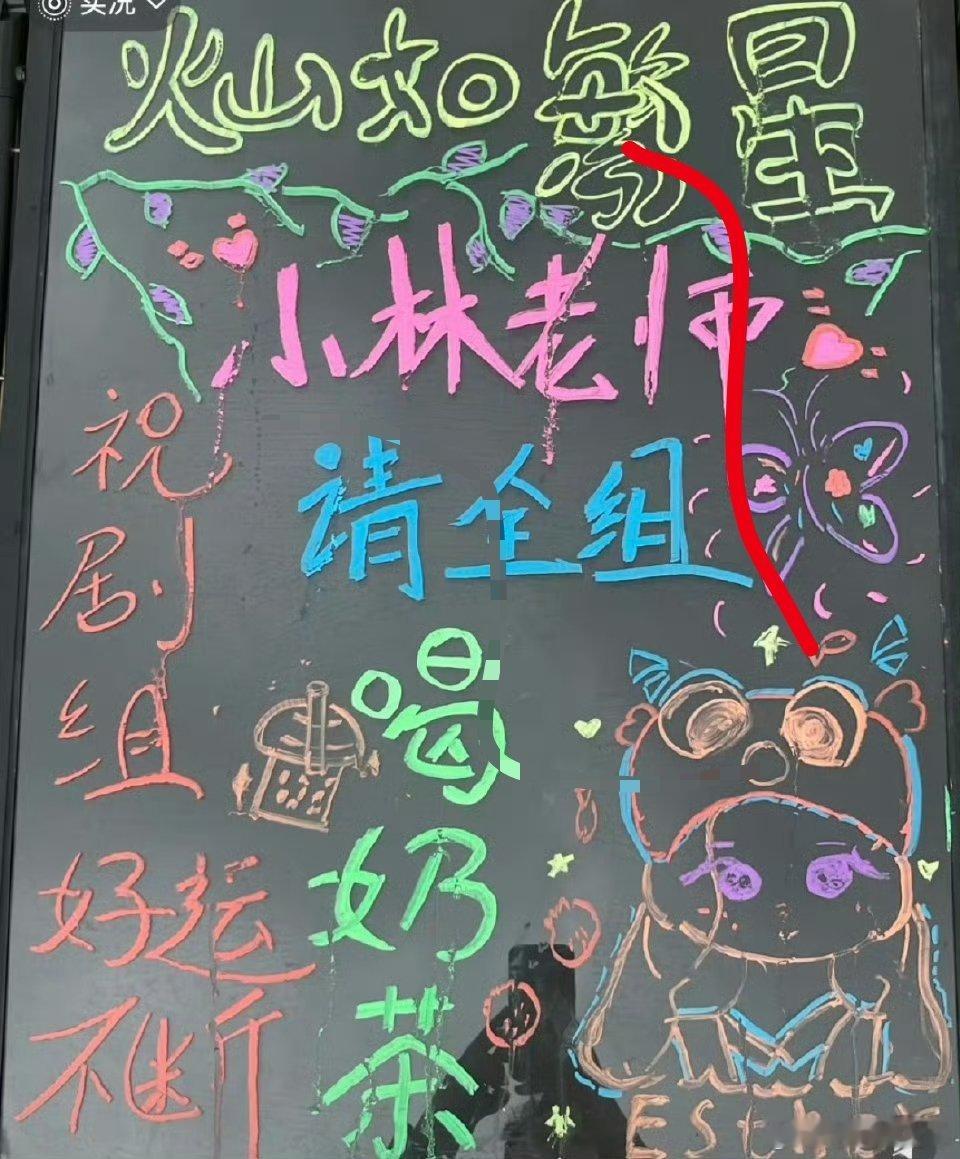 实况
火山如繁星
小林老师
请全组
喝
奶
茶
祝
剧
组
好运
不断